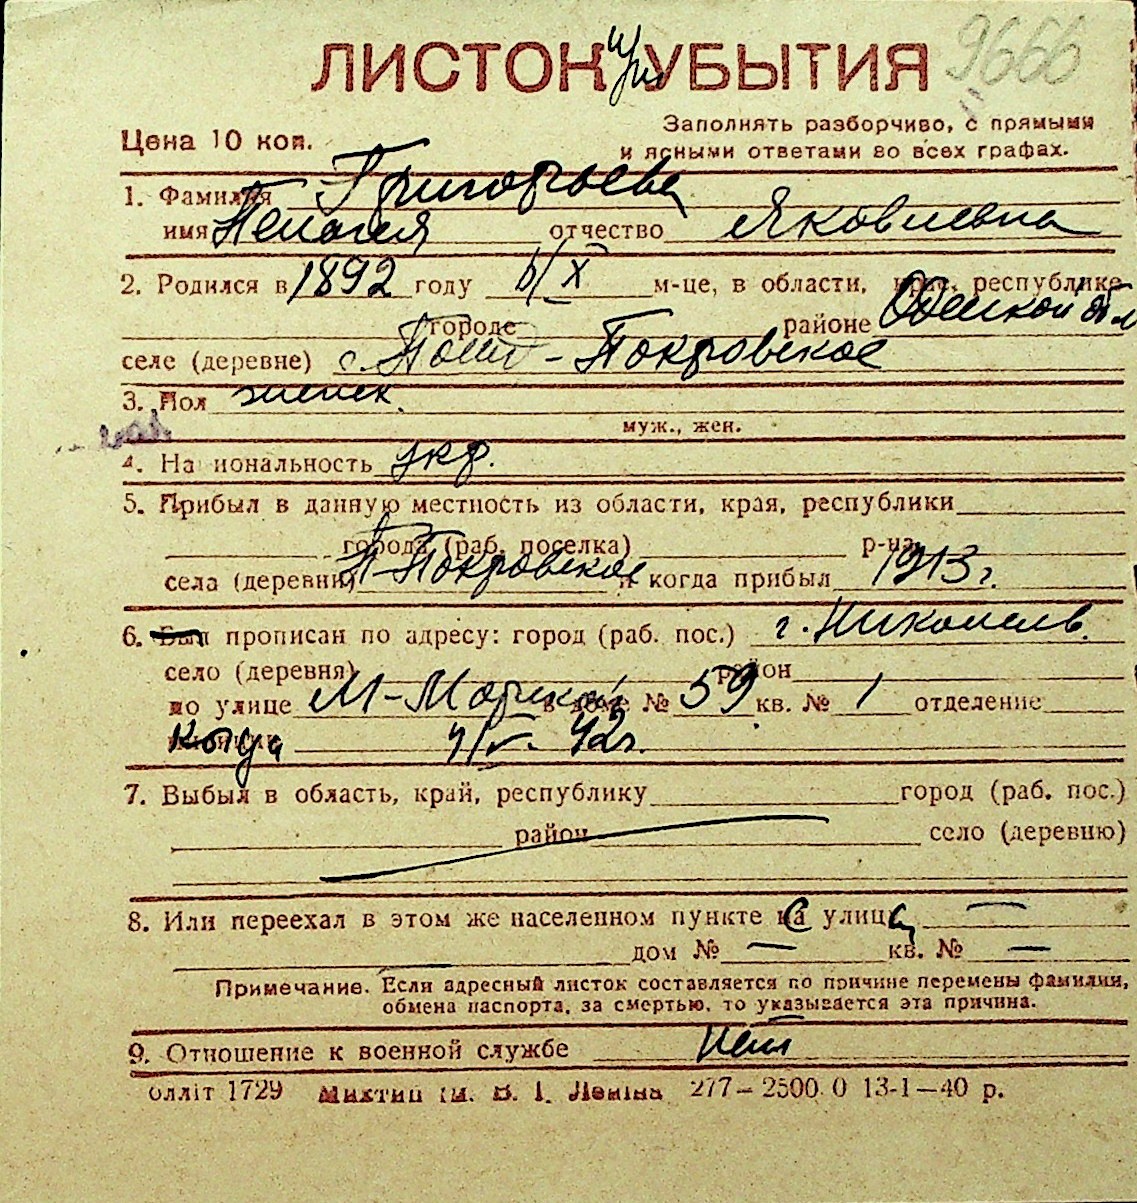 ЛИСТОК УБЫТИЯ
при
9666
Цена 10 коп.
Заполнять разборчиво, с прямыми
и ясными ответами во всех графах.
1. Фамилия Григорьева
имя Пелагея отчество Яковлевна
2. Родился в 1892 году 6/X м-це, в области, крае, республике
городе районе Одесской обл
селе (деревне) с. -Покровское
3. Пол женск.
муж., жен.
4. На иональность укр.
5. Прибыл в данную местность из области, края, республики
города (раб. поселка) р-на
села (деревни) П-Покровское и когда прибыл 1913 г.
6. Был прописан по адресу: город (раб. пос.) г. Николаев.
село (деревня) район
по улице М-Морской в доме № 59 кв. № 1 отделение
когда 4/V- 42г.
7. Выбыл в область, край, республику город (раб. пос.)
район село (деревню)
8. Или переехал в этом же населенном пункте на улицу —
дом № — кв. № —
Примечание. Если адресный листок составляется по причине перемены фамилии,
обмена паспорта, за смертью, то указывается эта причина.
9. Отношение к военной службе нет
олліт 1729 Миктип ім. В. І. Леніна 277—2500 0 13-1—40 р.